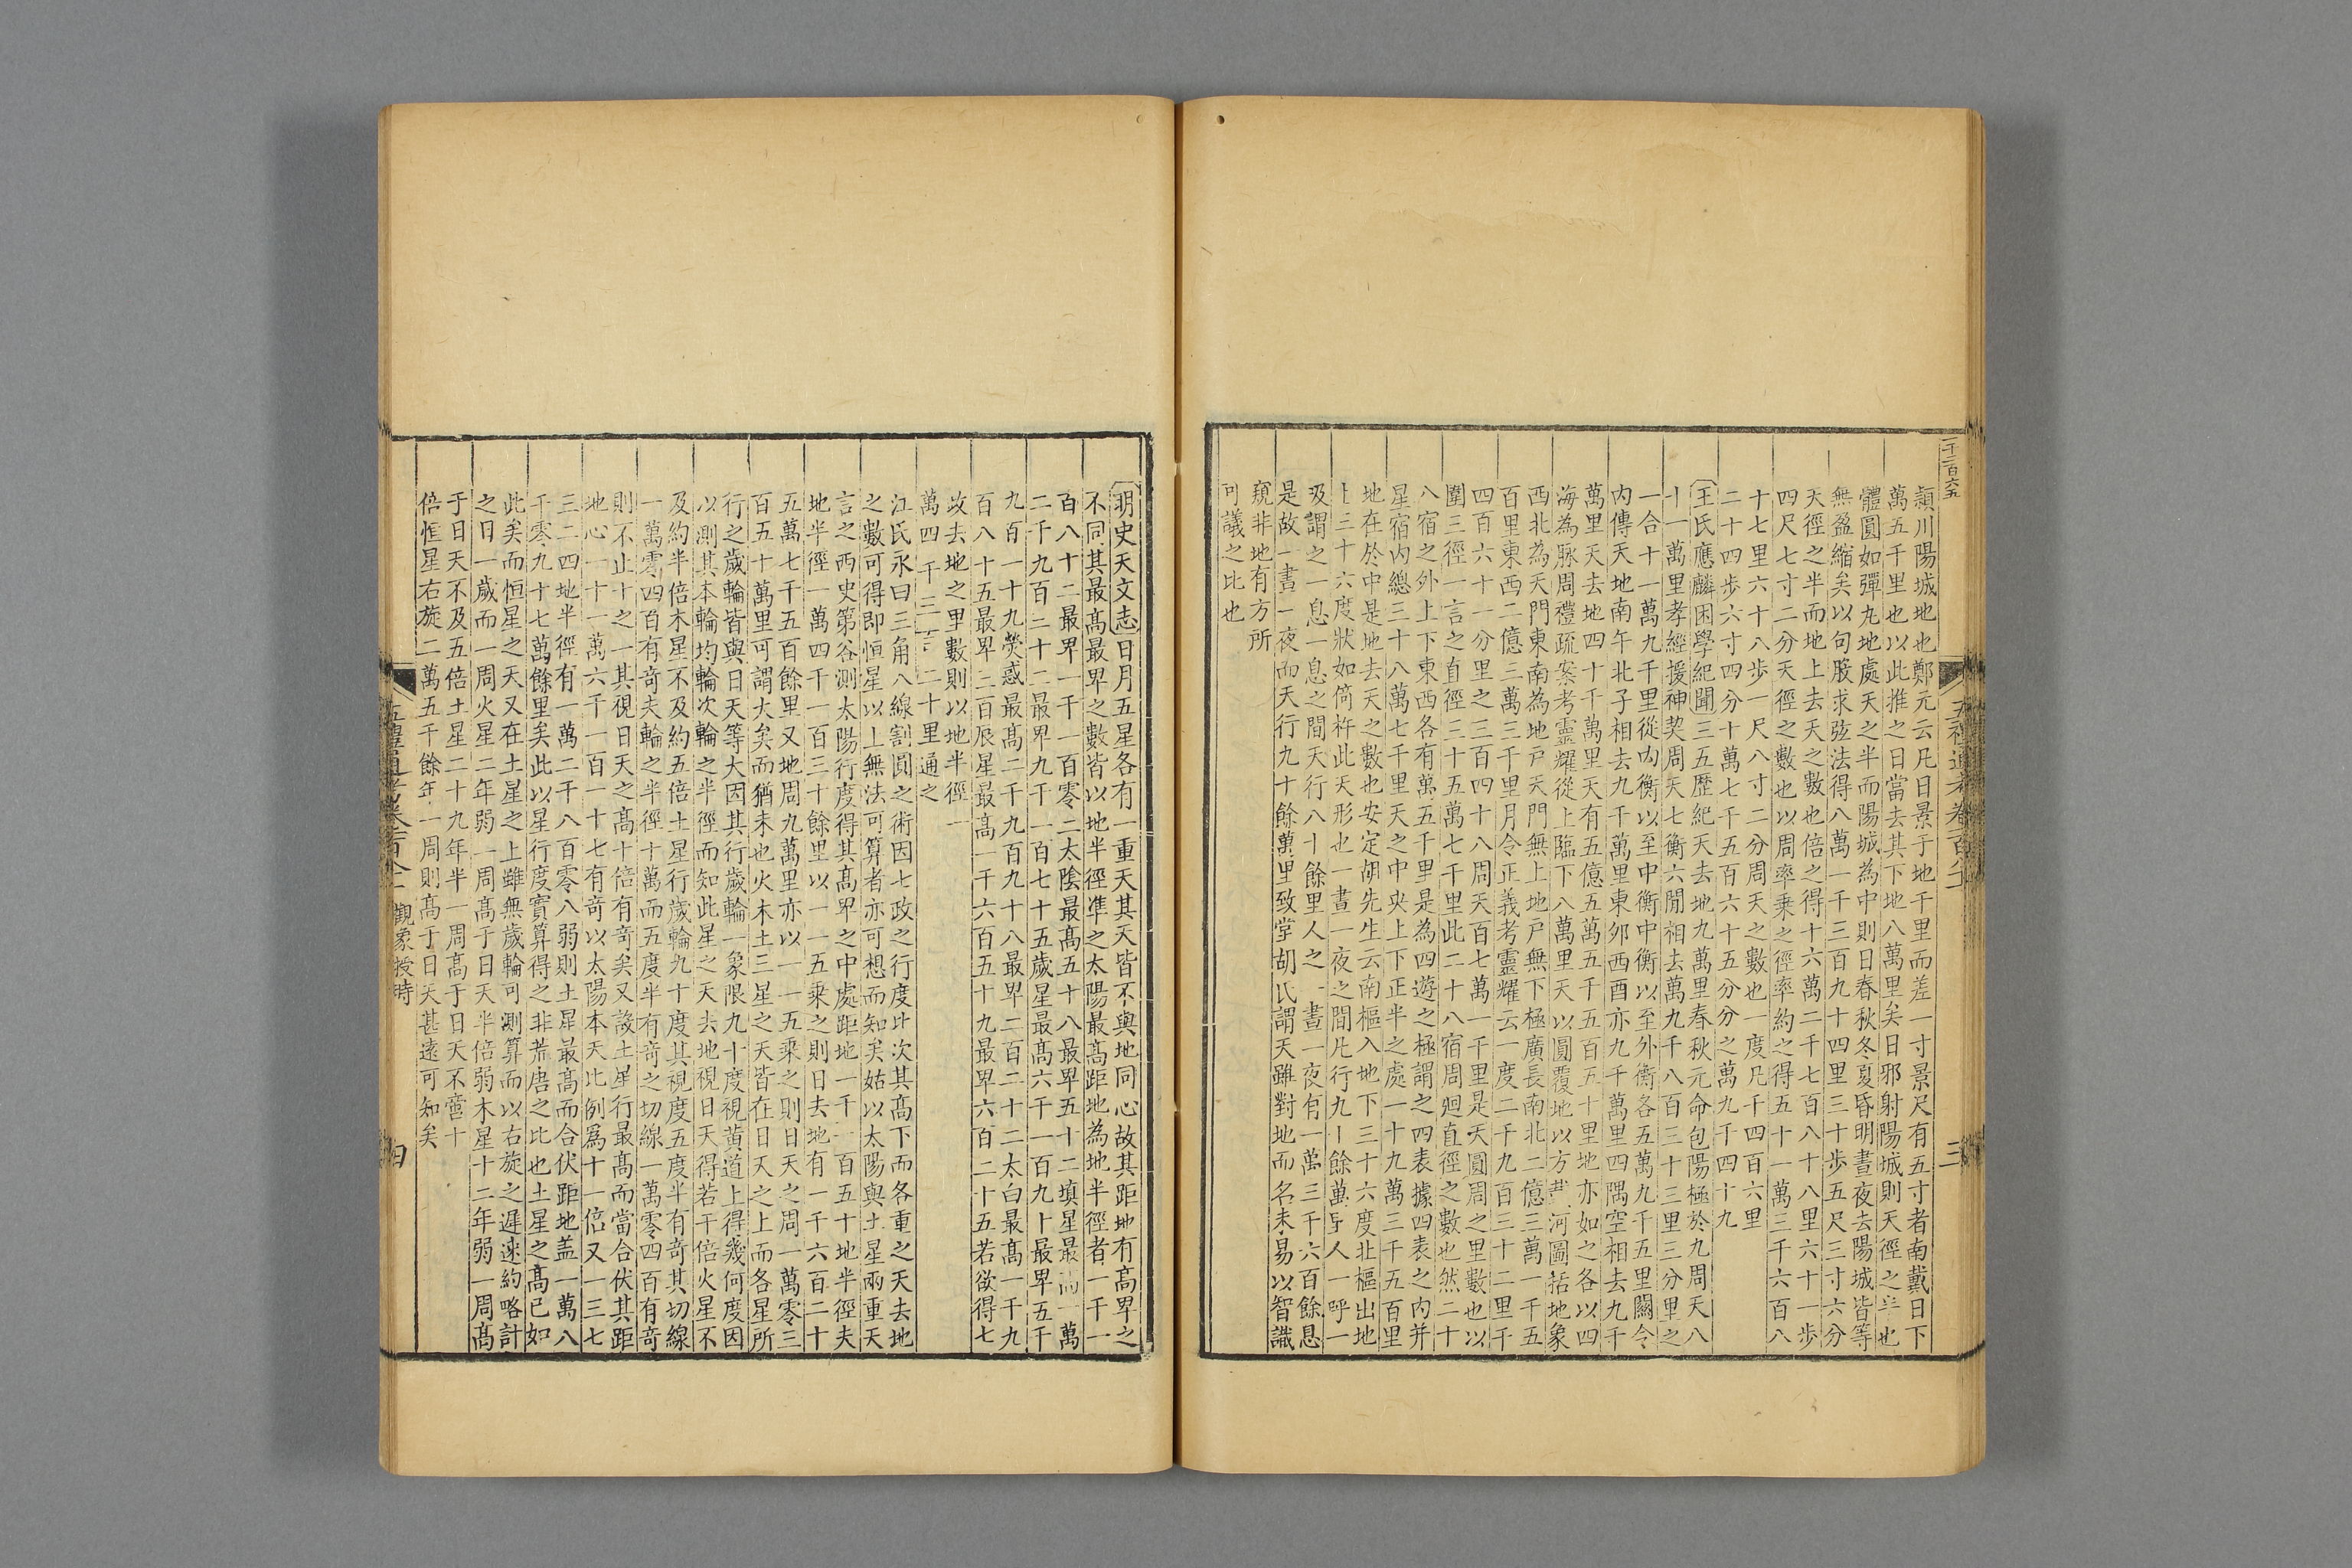 一千二百六五
潁川陽城地也鄭元云凡日景于地千里而差一寸景尺有五寸者南戴日下
萬五千里也以此推之日當去其下地八萬里矣日邪射陽城則天徑之半也
體圓如彈丸地處天之半而陽城為中則日春秋冬夏昏明晝夜去陽城皆等
無盈縮矣以句股求弦法得八萬一千三百九十四里三十步五尺三寸六分
天徑之半而地上去天之數也倍之得十六萬二千七百八十八里六十一步
四尺七寸二分天徑之數也以周率乘之徑率約之得五十一萬三千六百八
十七里六十八步一尺八寸二分周天之數也一度凡千四百六里
二十四步六寸四分十萬七千五百六十五分分之萬九千四十九
王氏應麟困學紀聞三五歷紀天去地九萬里春秋元命包陽極於九周天八
十一萬里孝經援神契周天七衡六間相去萬九千八百三十三里三分里之
一合十一萬九千里從內衡以至中衡中衡以至外衡各五萬九千五里關令
內傳天地南午北子相去九千萬里東卯西酉亦九千萬里四隅空相去九千
萬里天去地四十千萬里天有五億五萬五千五百五十里地亦如之各以四
海為脉周禮疏案考靈耀從上臨下八萬里天以圓覆地以方載河圖括地象
西北為天門東南為地戶天門無上地戶無下極廣長南北二億三萬一千五
百里東西二億三萬三千里月令正義考靈耀云一度二千九百三十二里千
四百六十一分里之三百四十八周天百七萬一千里是天圓周之里數也以
圍三徑一言之直徑三十五萬七千里此二十八宿周廻直徑之數也然二十
八宿之外上下東西各有萬五千里是為四遊之極謂之四表據四表之內并
星宿內總三十八萬七千里天之中央上下正半之處一十九萬三千五百里
地在於中是地去天之數也安定胡先生云南樞入地下三十六度北樞出地
上三十六度狀如倚杵此天形也一晝一夜之間凡行九十餘萬里人一呼一
吸謂之一息一息之間天行八十餘里人之一晝一夜有一萬三千六百餘息
是故一晝一夜而天行九十餘萬里致堂胡氏謂天雖對地而名未易以智識
窺非地有方所
可議之比也
五禮通考卷一百八十
三
明史天文志日月五星各有一重天其天皆不與地同心故其距地有高卑之
不同其最高最卑之數皆以地半徑準之太陽最高距地為地半徑者一千一
百八十二最卑一千一百零二太陰最高五十八最卑五十二填星最高一萬
二千九百三十二最卑九千一百七十五歲星最高六千一百九十最卑五千
九百一十九熒惑最高二千九百九十八最卑二百二十二太白最高一千九
百八十五最卑三百辰星最高一千六百五十九最卑六百二十五若欲得七
政去地之里數則以地半徑一
萬四千三百二十里通之
江氏永曰三角八線割圓之術因七政之行度比次其高下而各重之天去地
之數可得即恒星以上無法可算者亦可想而知矣姑以太陽與土星兩重天
言之西史第谷測太陽行度得其高卑之中處距地一千一百五十地半徑夫
地半徑一萬四千一百三十餘里以一一五乘之則日去地有一千六百二十
五萬七千五百餘里又地周九萬里亦以一一五乘之則日天之周一萬零三
百五十萬里可謂大矣而猶未也火木土三星之天皆在日天之上而各星所
行之歲輪皆與日天等大因其行歲輪一象限九十度視黃道上得幾何度因
以測其本輪均輪次輪之半徑而知此星之天去地視日天得若干倍火星不
及約半倍木星不及約五倍土星行歲輪九十度其視度五度半有奇其切線
一萬零四百有奇夫輪之半徑十萬而五度半有奇之切線一萬零四百有奇
則不止十之一其視日天之高十倍有奇矣又設土星行最高而當合伏其距
地心一十一萬六千一百一十七有奇以太陽本天比例爲十一倍又一三七
三二四地半徑有一萬二千八百零八弱則土星最高而合伏距地盖一萬八
千零九十七萬餘里矣此以星行度實算得之非荒唐之比也土星之高已如
此矣而恒星之天又在土星之上雖無歲輪可測算而以右旋之遲速約略計
之日一歲而一周火星二年弱一周高于日天半倍弱木星十二年弱一周高
于日天不及五倍土星二十九年半一周高于日天不啻十
倍恒星右旋二萬五千餘年一周則高于日天甚遠可知矣
五禮通考卷一百八十一 觀象授時
四